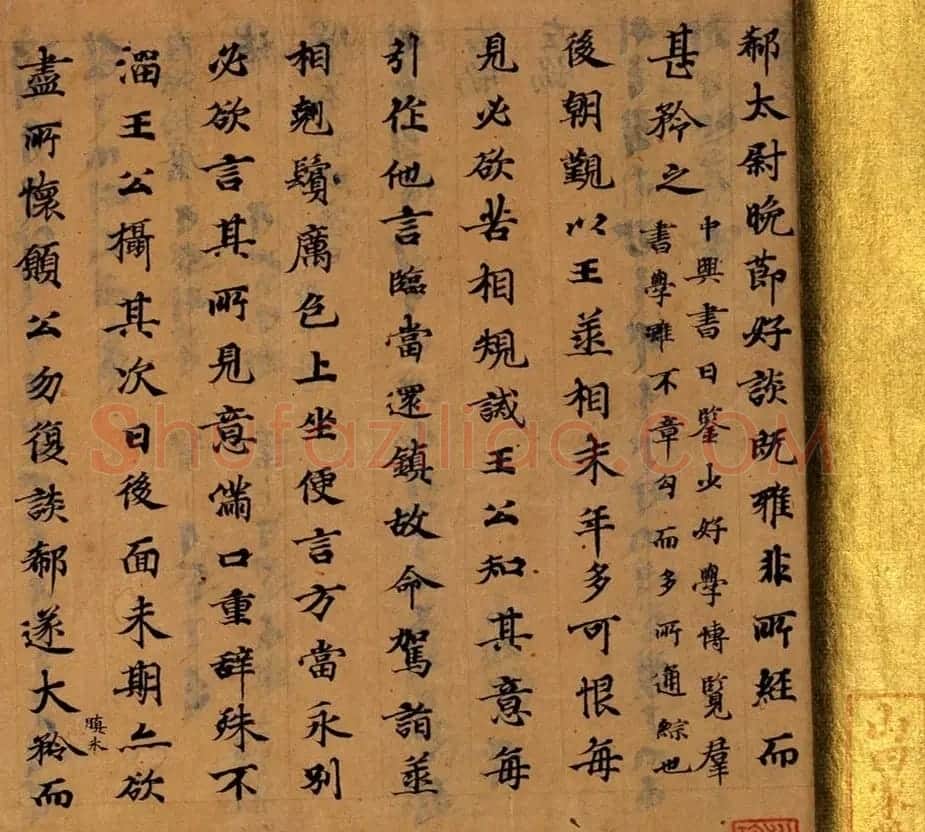 郗太尉晚節好談既雅非所經而
甚矜之
中興書曰鑒少好學博覽羣
書學雖不章句而多所通綜也
後朝覲以王丞相末年多可恨每
見必欲苦相規誡王公知其意每
引作他言臨當還鎮故命駕詣丞
相翹鬢厲色上坐便言方當永別
必欲言其所見意滿口重辭殊不
溜王公攝其次曰後面未期亦欲
盡所懷願公勿復談郗遂大矜而
Shufaziliao.COM